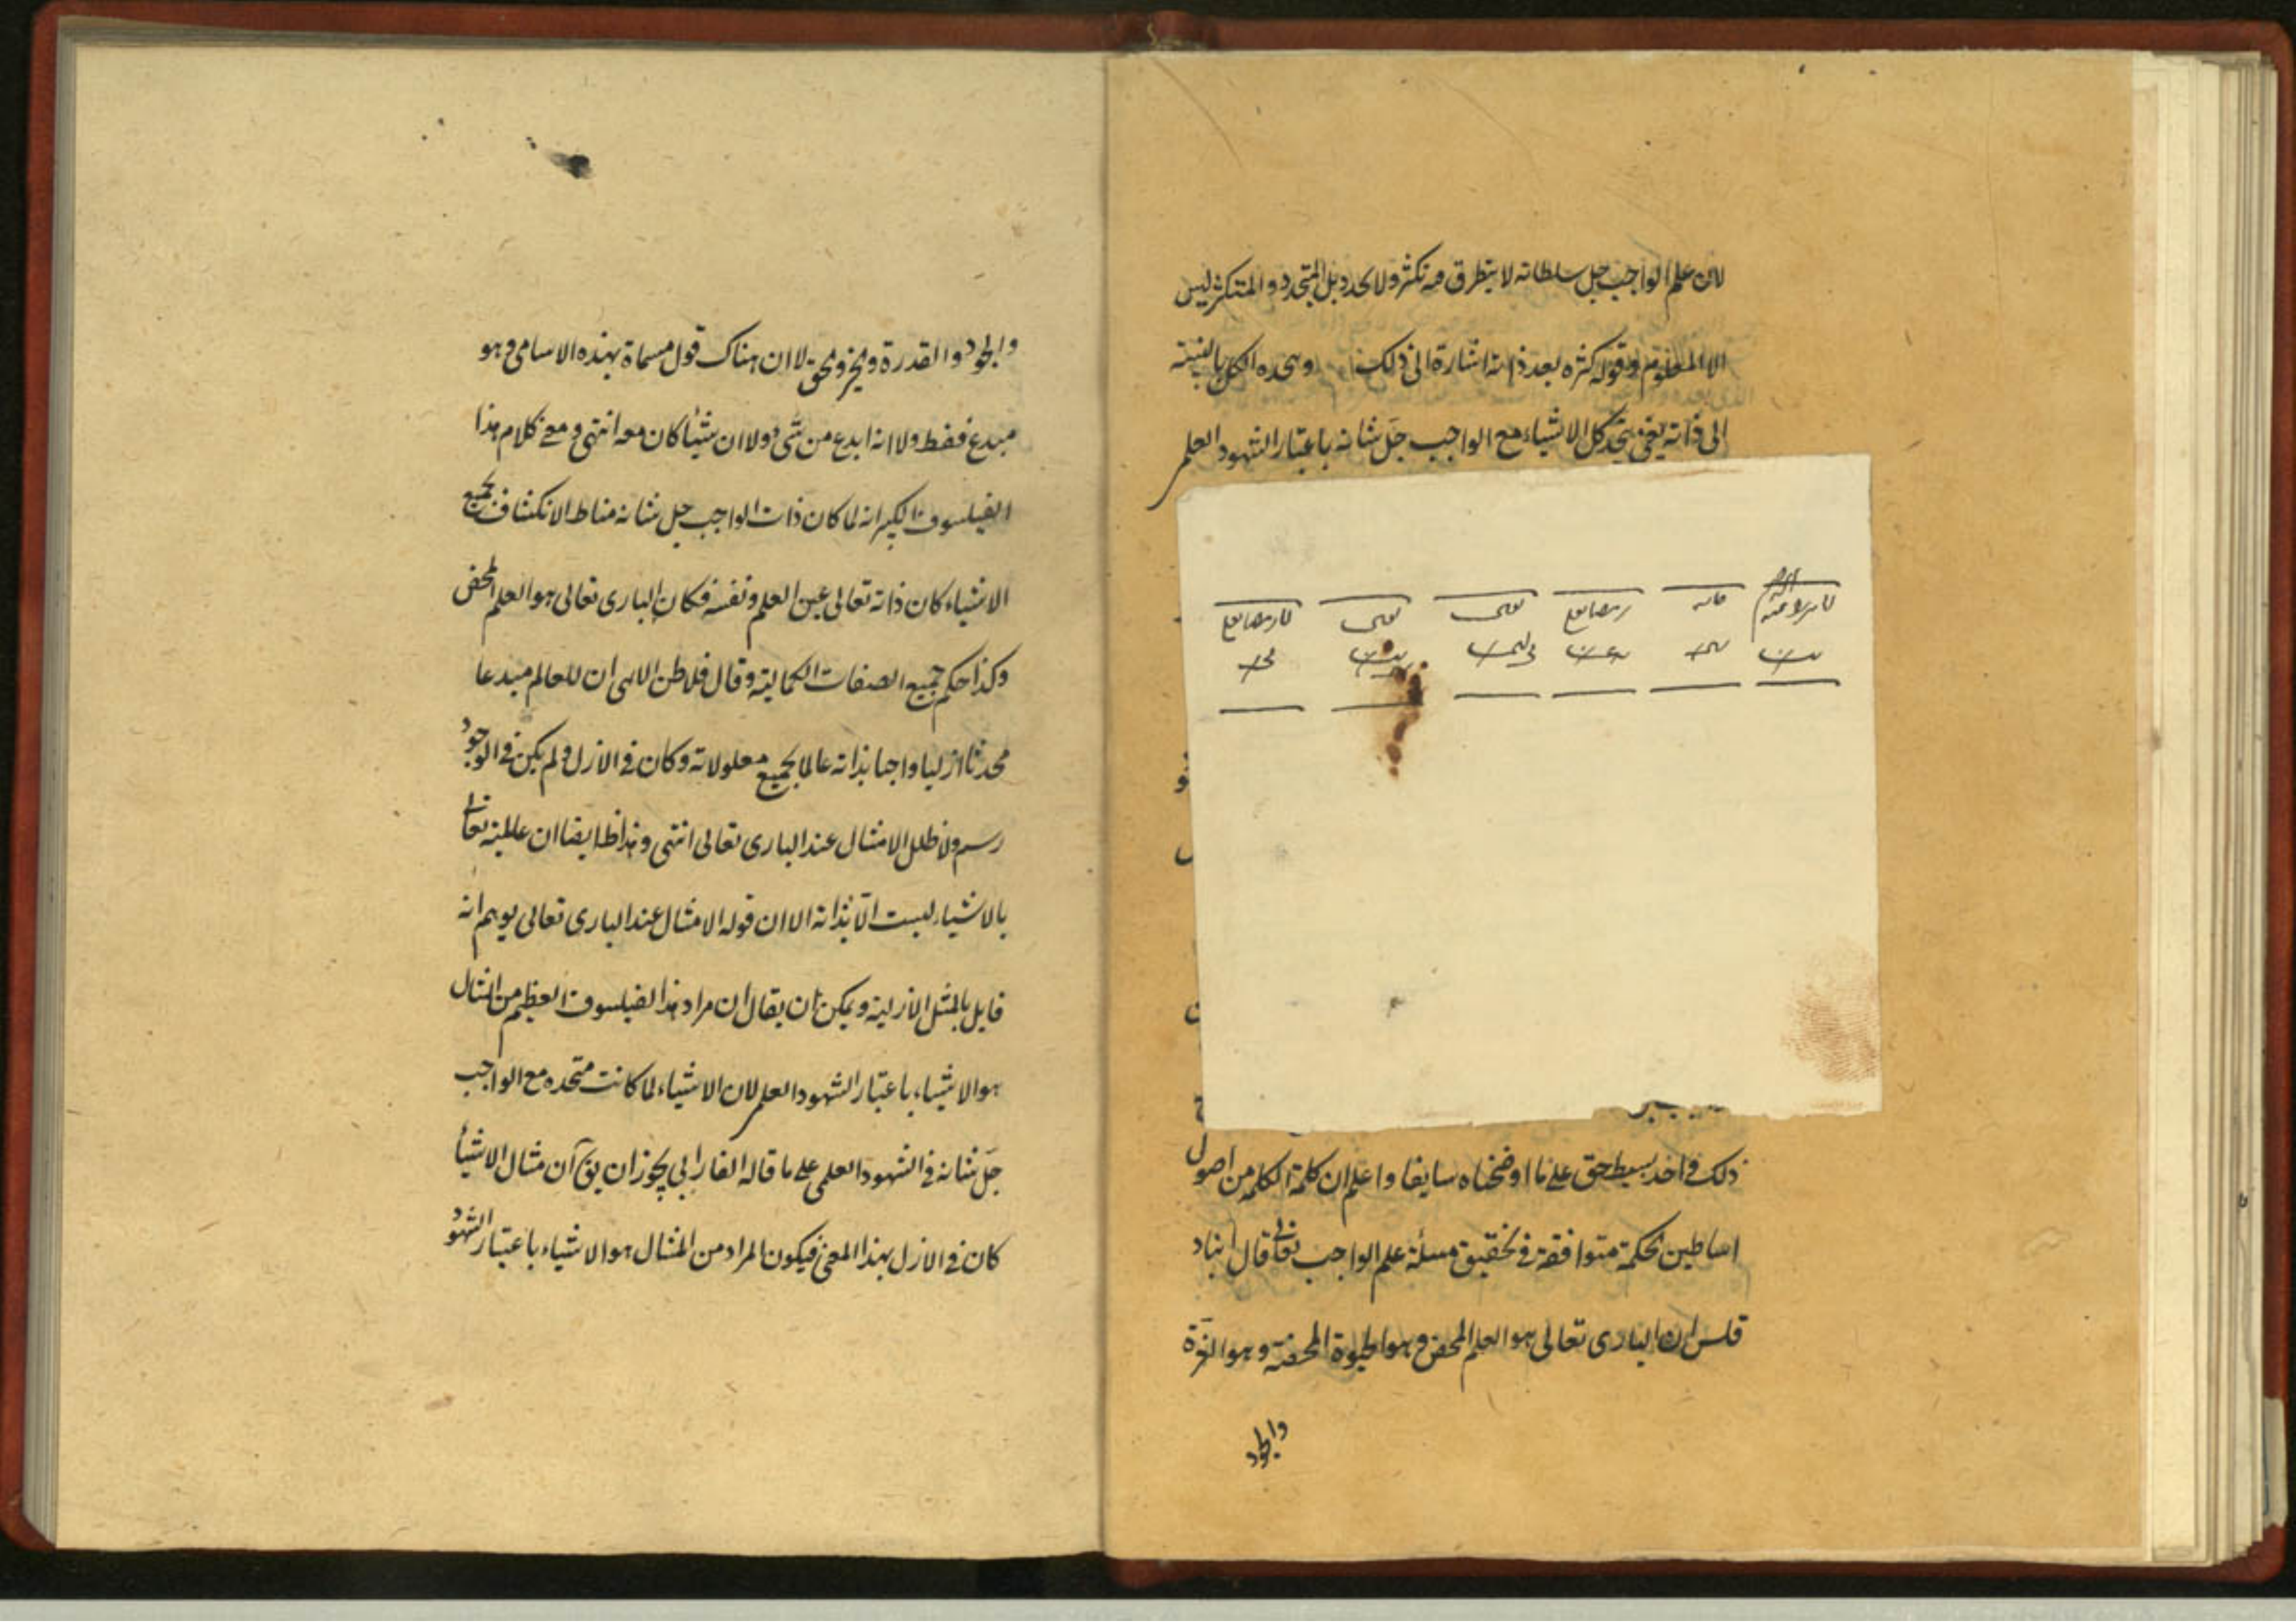 لان علم الواجب جل سلطانه لا يتطرق فيه تكثر ولا تجدد بل المتجدد والمتكثر ليس
الا المعلوم وقوله كثره بعد ذاته اشارة الى ذلك ويتحده الكل بالنسبته
الى ذاته يعنى يتحد كل الاشياء مع الواجب جل شانه باعتبار الشهود العلمى
ذلك فى احد بسيط حق على ما اوضحناه سابقا واعلم ان كلمة الكلمه من اصول
اساطين الحكمة متوافقة فى تحقيق مسئلة علم الواجب تعالى قال انباد
قلس ان البارى تعالى هو العلم المحض وهو الحيوة المحضة وهو القوة
والجود
والجود والقدرة والخير والحق لا ان هناك قول مسماة بهذه الاسامى وهو
مبدع فقط ولا انه ابدع من شىء ولا ان شيئا كان معه انتهى ومعنى كلام هذا
الفيلسوف الكبير انه لما كان ذات الواجب جل شانه مناط الانكشاف جميع
الاشياء كان ذاته تعالى عين العلم ونفسه فكان البارى تعالى هو العلم المحض
وكذا حكم جميع الصفات الكمالية وقال فلاطن الالهى ان للعالم مبدعا
محدثا ازليا واجبا بذاته عالما بجميع معلولاته وكان فى الازل ولم يكن فى الوجود
رسم ولا طلل الا مثال عند البارى تعالى انتهى وهذا ايضا ان عالميته تعالى
بالاشياء ليست الا بذاته الا ان قوله الا مثال عند البارى تعالى يوهم انه
قايل بالمثل الازلية ويمكن ان يقال ان مراد هذا الفيلسوف العظيم من المثال
هو الاشياء باعتبار الشهود العلمى لان الاشياء لما كانت متحده مع الواجب
جل شانه فى الشهود العلمى على ما قاله الفارابى يجوز ان يق آن مثال الاشيا
كان فى الازل بهذا المعنى فيكون المراد من المثال هو الاشياء باعتبار الشهود